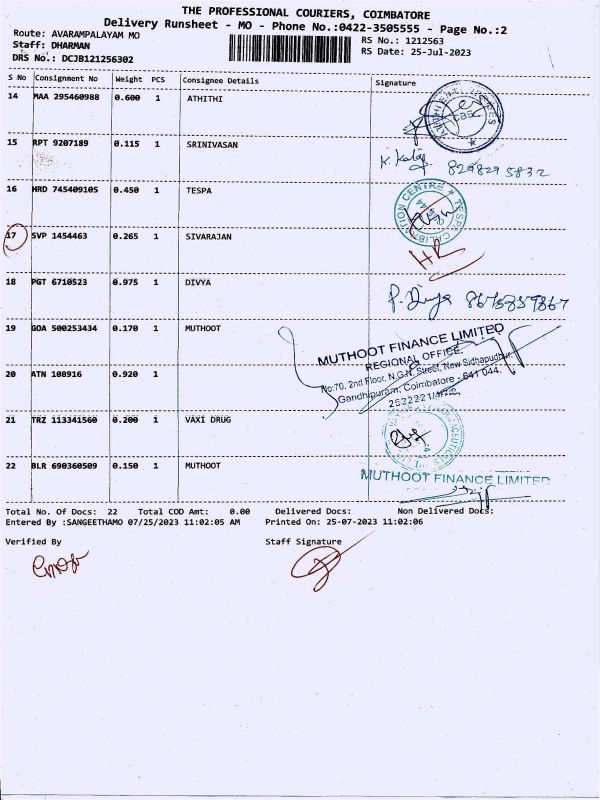 THE PROFESSIONAL COURIERS, COIMBATORE
Delivery Runsheet - MO - Phone No.:0422-3505555 - Page No.:2
Route: AVARAMPALAYAM MO
RS No.: 1212563
Staff: DHARMAN
RS Date: 25-Jul-2023
DRS No.: DCJB121256302
S No Consignment No Weight PCS Consignee Details Signature
14 MAA 295460988 0.600 1 ATHITHI
15 RPT 9207189 0.115 1 SRINIVASAN
8298295832
16 HRD 745409105 0.450 1 TESPA
TESPA CALIBRATION CENTRE
17 SVP 1454463 0.265 1 SIVARAJAN
HR
18 PGT 6710523 0.975 1 DIVYA
P. Divya
19 GOA 500253434 0.170 1 MUTHOOT
MUTHOOT FINANCE LIMITED
REGIONAL OFFICE,
No:70, 2nd Floor, N.G.N. Street, New Sidhapudhur,
Gandhipuram, Coimbatore - 641 044.
20 ATN 108916 0.920 1
21 TRZ 113341560 0.200 1 VAXI DRUG
22 BLR 690360509 0.150 1 MUTHOOT
MUTHOOT FINANCE LIMITED
Total No. Of Docs: 22 Total COD Amt: 0.00 Delivered Docs: Non Delivered Docs:
Entered By :SANGEETHAMO 07/25/2023 11:02:05 AM Printed On: 25-07-2023 11:02:06
Verified By Staff Signature